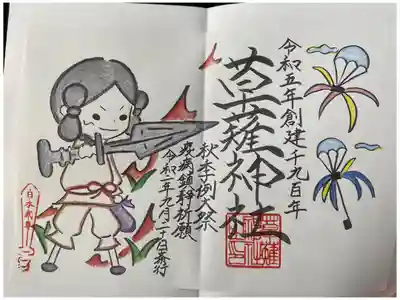 令和五年創建千九百年
草薙神社
秋季例大祭
疫病鎮静祈願
令和五年九月二十日斎行
日本武尊